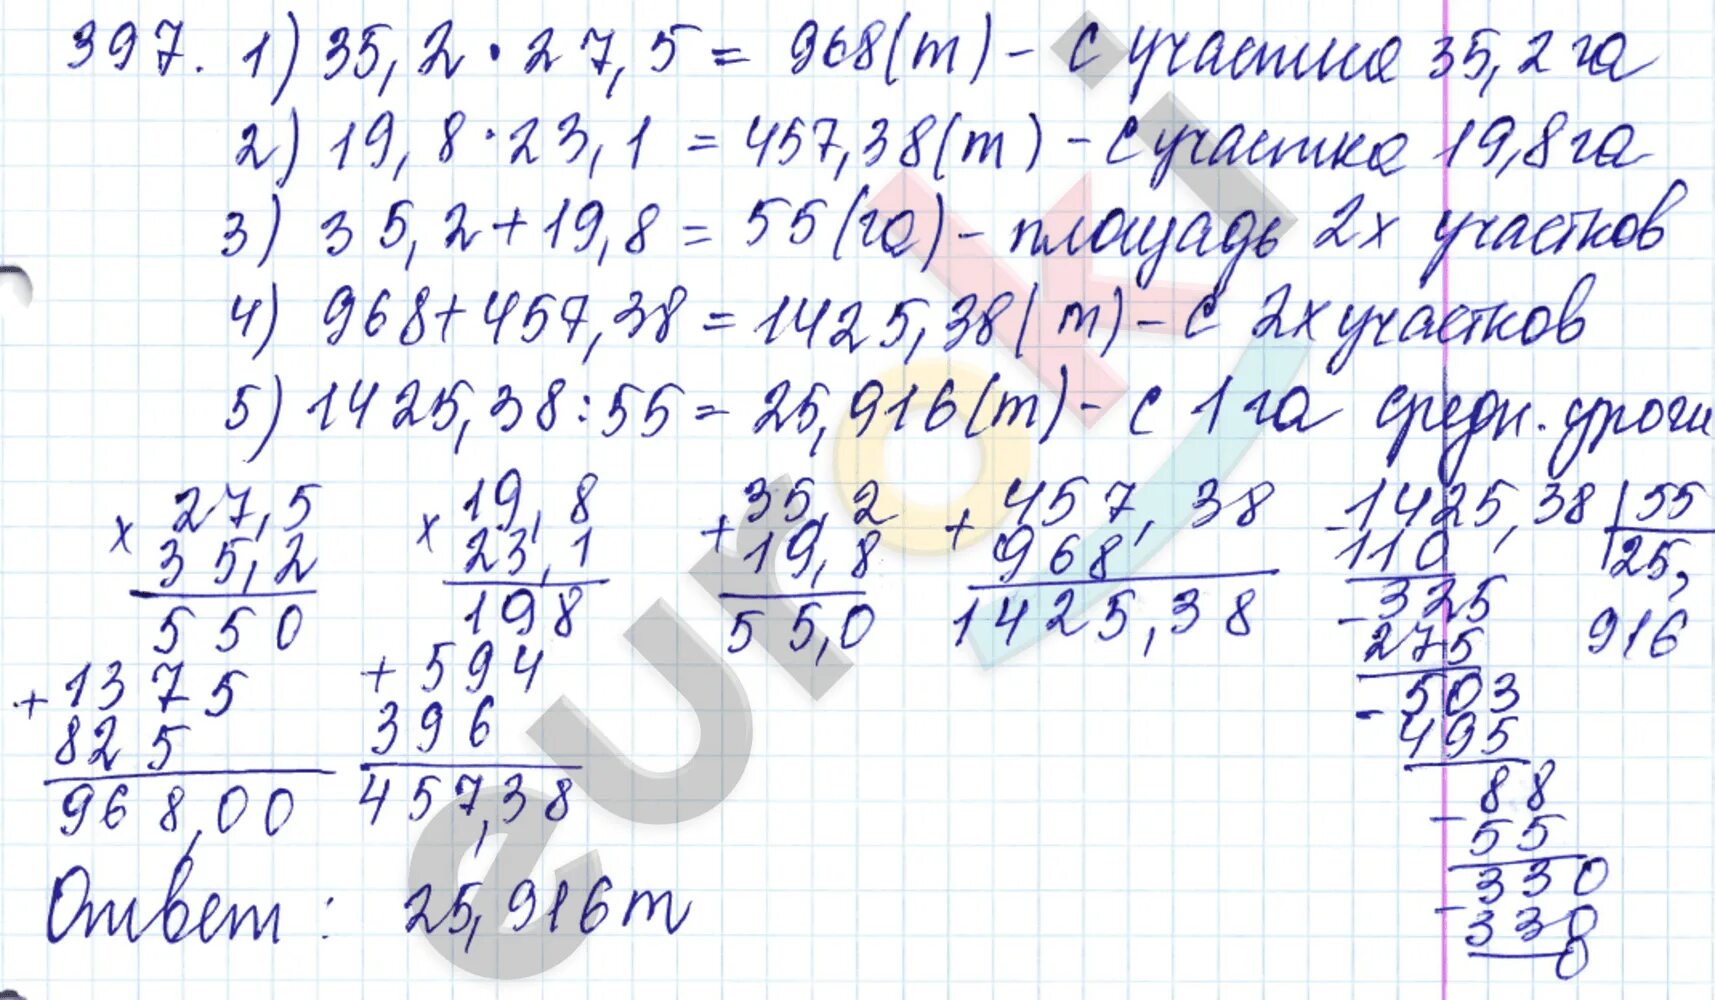 397. 1) 35,2 · 27,5 = 968(т) – с участка 35,2 га
2) 19,8 · 23,1 = 457,38(т) – с участка 19,8 га
3) 35,2 + 19,8 = 55(га) – площадь 2х участков
4) 968 + 457,38 = 1425,38(т) – с 2х участков
5) 1425,38 : 55 = 25,916(т) – с 1 га средн. урожи
× 27,5
35,2
550
+ 1375
825
968,00
× 19,8
23,1
198
+ 594
396
457,38
+ 35,2
19,8
55,0
+ 457,38
968
1425,38
- 1425,38 | 55
110 25,
- 325 916
275
- 503
495
- 88
55
- 330
330
0
Ответ: 25,916 т
euroki